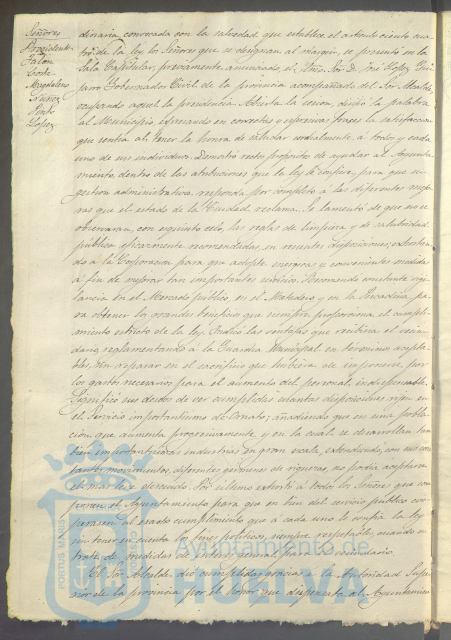 Señores
Presidente
Falon
Coste
Magdaleno
Nuñez
Pinto
Lopez
dinaria, convocada con la salvedad que establece el articulo ciento cua-
tro de la ley los Señores que se designan al margen, se presentó en la
Sala Capitular, previamente anunciado, el Ilmo. Sor. D. José Lopez
Gobernador Civil de la provincia acompañado del Sor. Alcalde,
ocupando aquel la presidencia. Abierta la sesion, dirijió la palabra
al Municipio, espresando en correctas y espresivas frases la satisfaccion
que sentia al tener la honra de saludar cordialmente á todos y cada
uno de sus individuos. Demostró recto proposito de ayudar al Ayunta-
miento, dentro de las atribuciones que la ley le confiere, para que su
gestion administrativa responda por completo á las diferentes mejo-
ras que el estado de la Ciudad reclama. Se lamentó de que no se
observaran, con esquisito celo, las reglas de limpieza y de salubridad
publica eficazmente recomendadas, en recientes disposiciones, exhortan-
do á la Corporacion para que adopte energicas y convenientes medidas
á fin de mejorar tan importantes servicios. Recomendó constante vigi-
lancia en el Mercado publico, en el Matadero y en la Pescaderia, pa-
ra obtener los grandes beneficios que siempre proporciona el cumpli-
miento estricto de la ley. Indicó las ventajas que recibiria el vecin-
dario reglamentando á la Guardia Municipal en terminos acepta-
bles, sin reparar en el sacrificio que hubiera de imponerse, por
los gastos necesarios para el aumento del personal indispensable.
Significó sus deseos de ver cumplidas cuantas disposiciones rijen en
el servicio importantisimo de Ornato; añadiendo que en una pobla-
cion que aumenta progresivamente y en la cual se desarrollan tam-
bien importantisimas industrias en gran escala, estendiendo, con sus cons-
tantes movimientos, diferentes germenes de riquezas, no podia aceptarse
el mas leve descuido. Por ultimo exhortó á todos los Señores que com-
ponen el Ayuntamiento para que en bien del servicio publico coo-
perasen al exacto cumplimiento que á cada uno le confia la ley
sin tener en cuenta los fines politicos, siempre respetables, cuando se
trate de medidas de interés para el vecindario.
El Sor. Alcalde dió cumplidas gracias á la Autoridad Supe-
rior de la provincia por el honor que dispensaba al Ayuntamien-
PORTUS MARIS
Ayuntamiento de
HUELVA